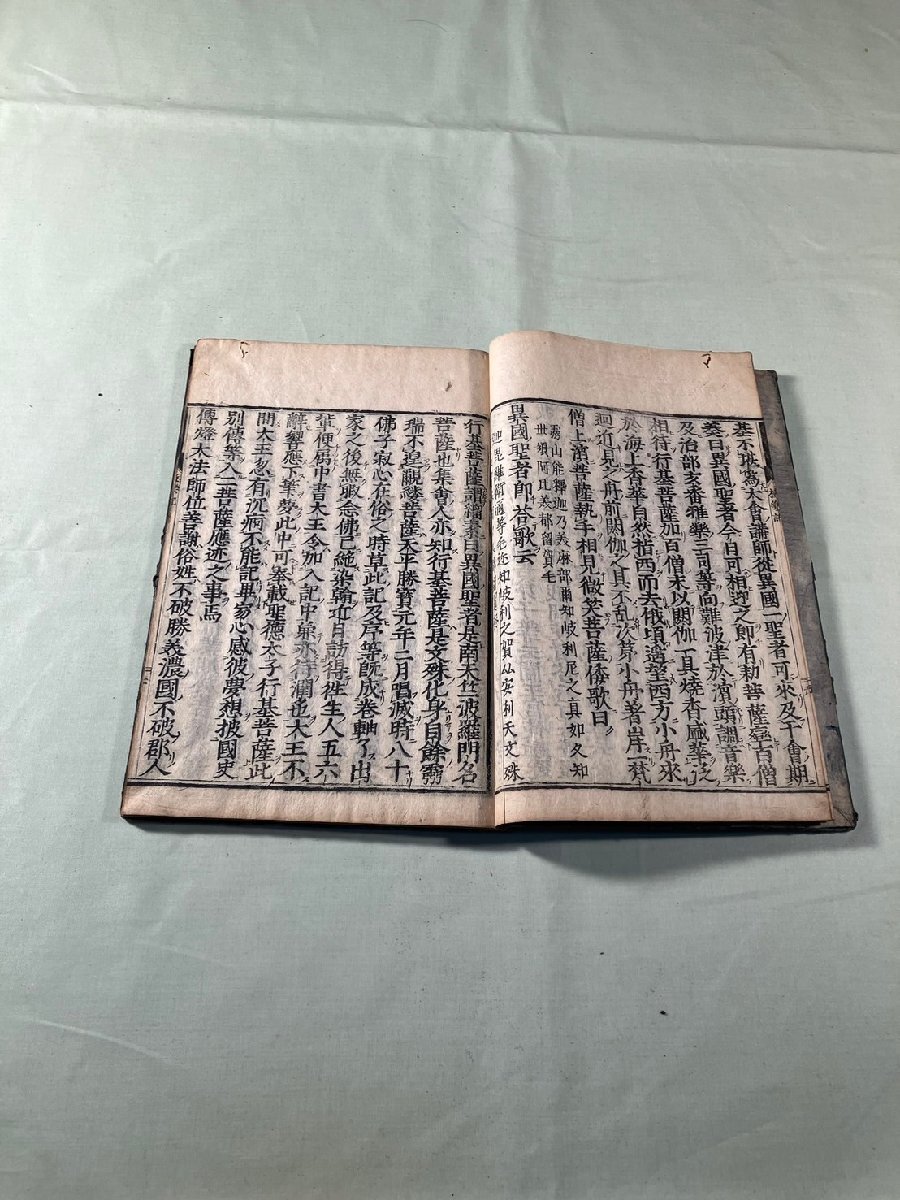 基不堪爲大會講師從異國一聖者可來及于會期
基曰異國聖者今日可相迎之即有勅菩薩率百僧
及治部玄番雅樂三司等向難波津於濱頭調音樂
相待行基菩薩加百僧末以閼伽一具燒香盛華泛
於海上香華自然指西而去俄頃遙望西方小舟來
迎近見之舟前閼伽之具不亂次第小舟著岸一梵
僧上濱菩薩執手相見微咲菩薩倡歌曰
靈山能釋迦乃美麻部爾知岐利天之真如久知
世須阿比美都留賀毛
異國聖者即答歌云
迦毘羅衛爾等毛爾知岐利之賀比安利天文殊
行基菩薩謂緇素曰異國聖者是南天竺波羅門名
菩薩也集會人亦知行基菩薩是文殊化身自餘靈
瑞不遑觀縷菩薩天平勝寶元年二月唱滅時八十
佛子寂心在俗之時草此記及序等既成卷軸了出
家之後無暇念佛已絕染翰近日訪得往生人五六
輩便屬中書大王令加入記中兼亦待潤色大王不
辭響應下筆夢此中可奉載聖德太子行基菩薩此
間大王忽有沉痾不能記畢寂心感彼夢想披國史
別傳等入二菩薩應迹之事焉
傳燈大法師位善謝俗姓不破勝美濃國不破郡人